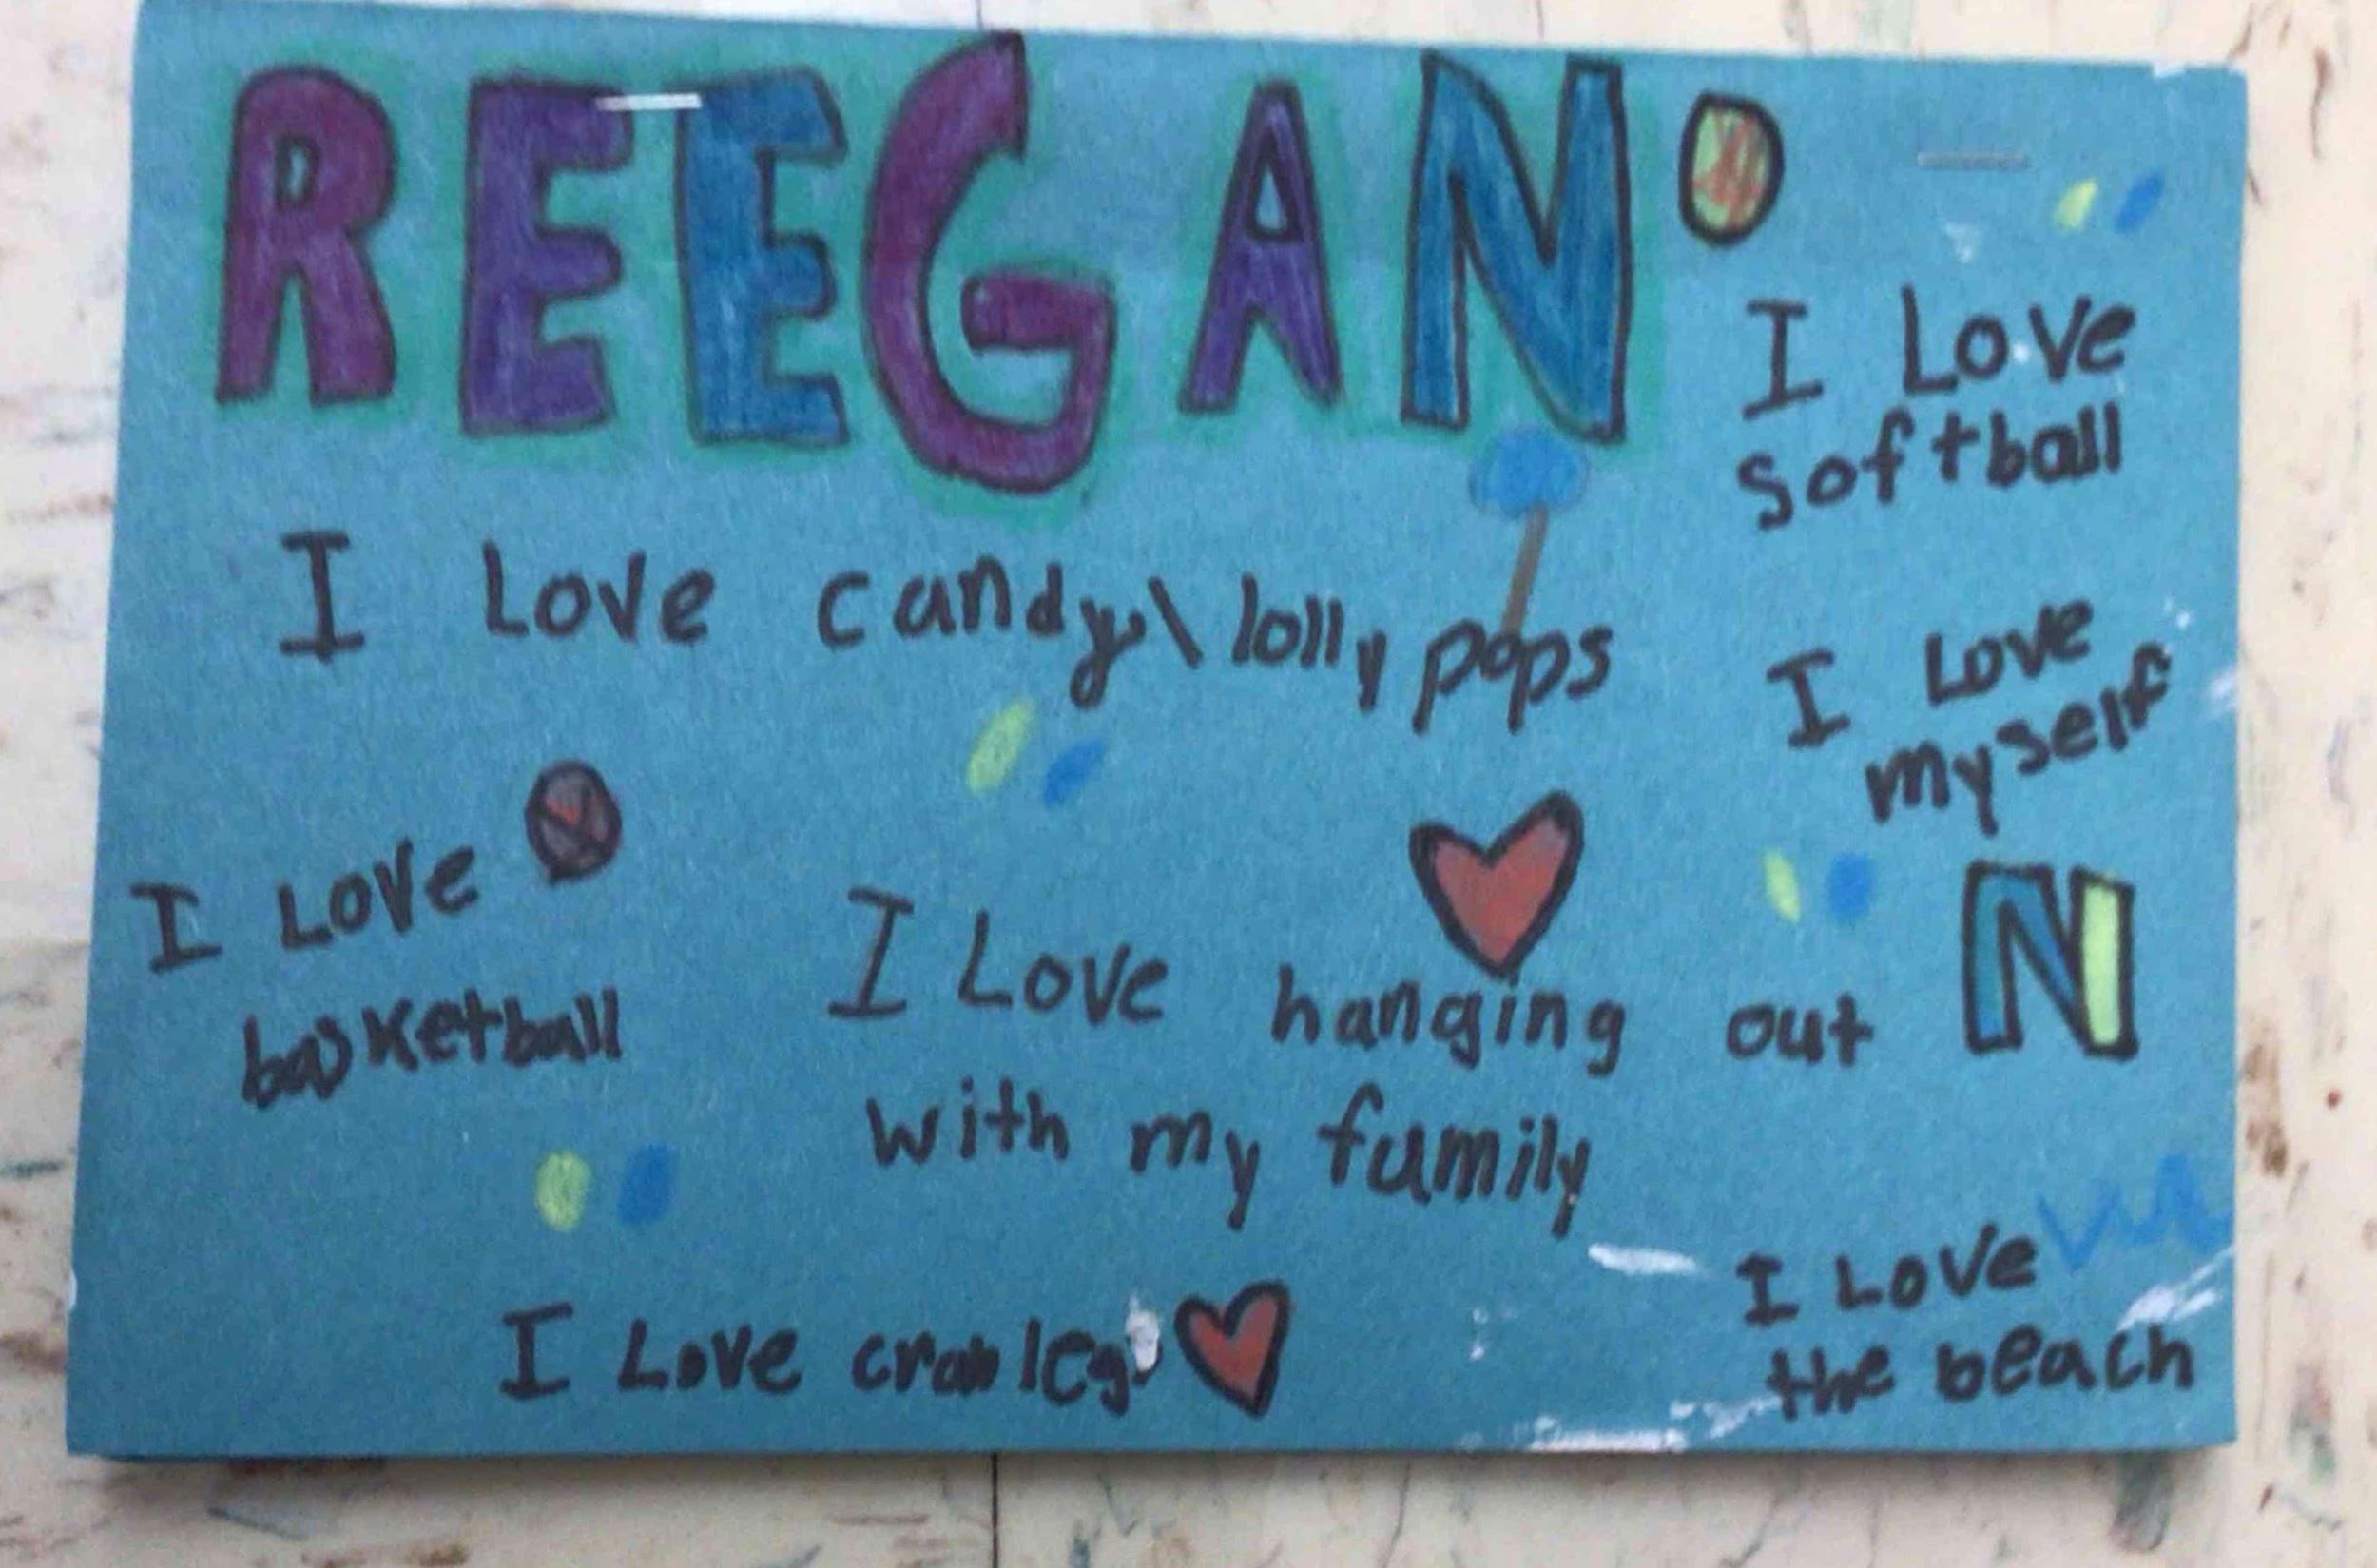 REEGAN
I Love
softball
I Love candy\lolly pops
I Love
myself
I Love
basketball
I Love hanging out
with my family
N
I Love crab legs
I Love
the beach